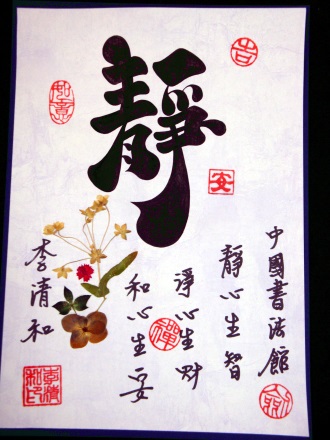 靜
中國書法館
靜心生智
淨心生财
和心生妥
李清和
吉
如意
安
禪